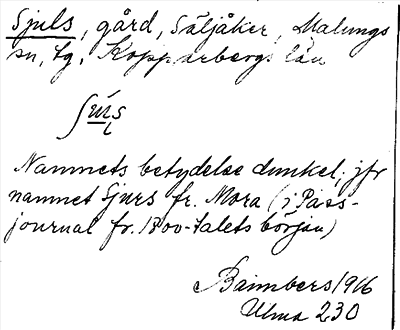 Sjuls, gård, Säljåker, Malungs
sn, tg, Kopparbergs län
Namnets betydelse dunkel; jfr
namnet Sjurs fr. Mora (i Pass-
journal fr. 1800-talets början)
Baimbers 1916
Ulma 230